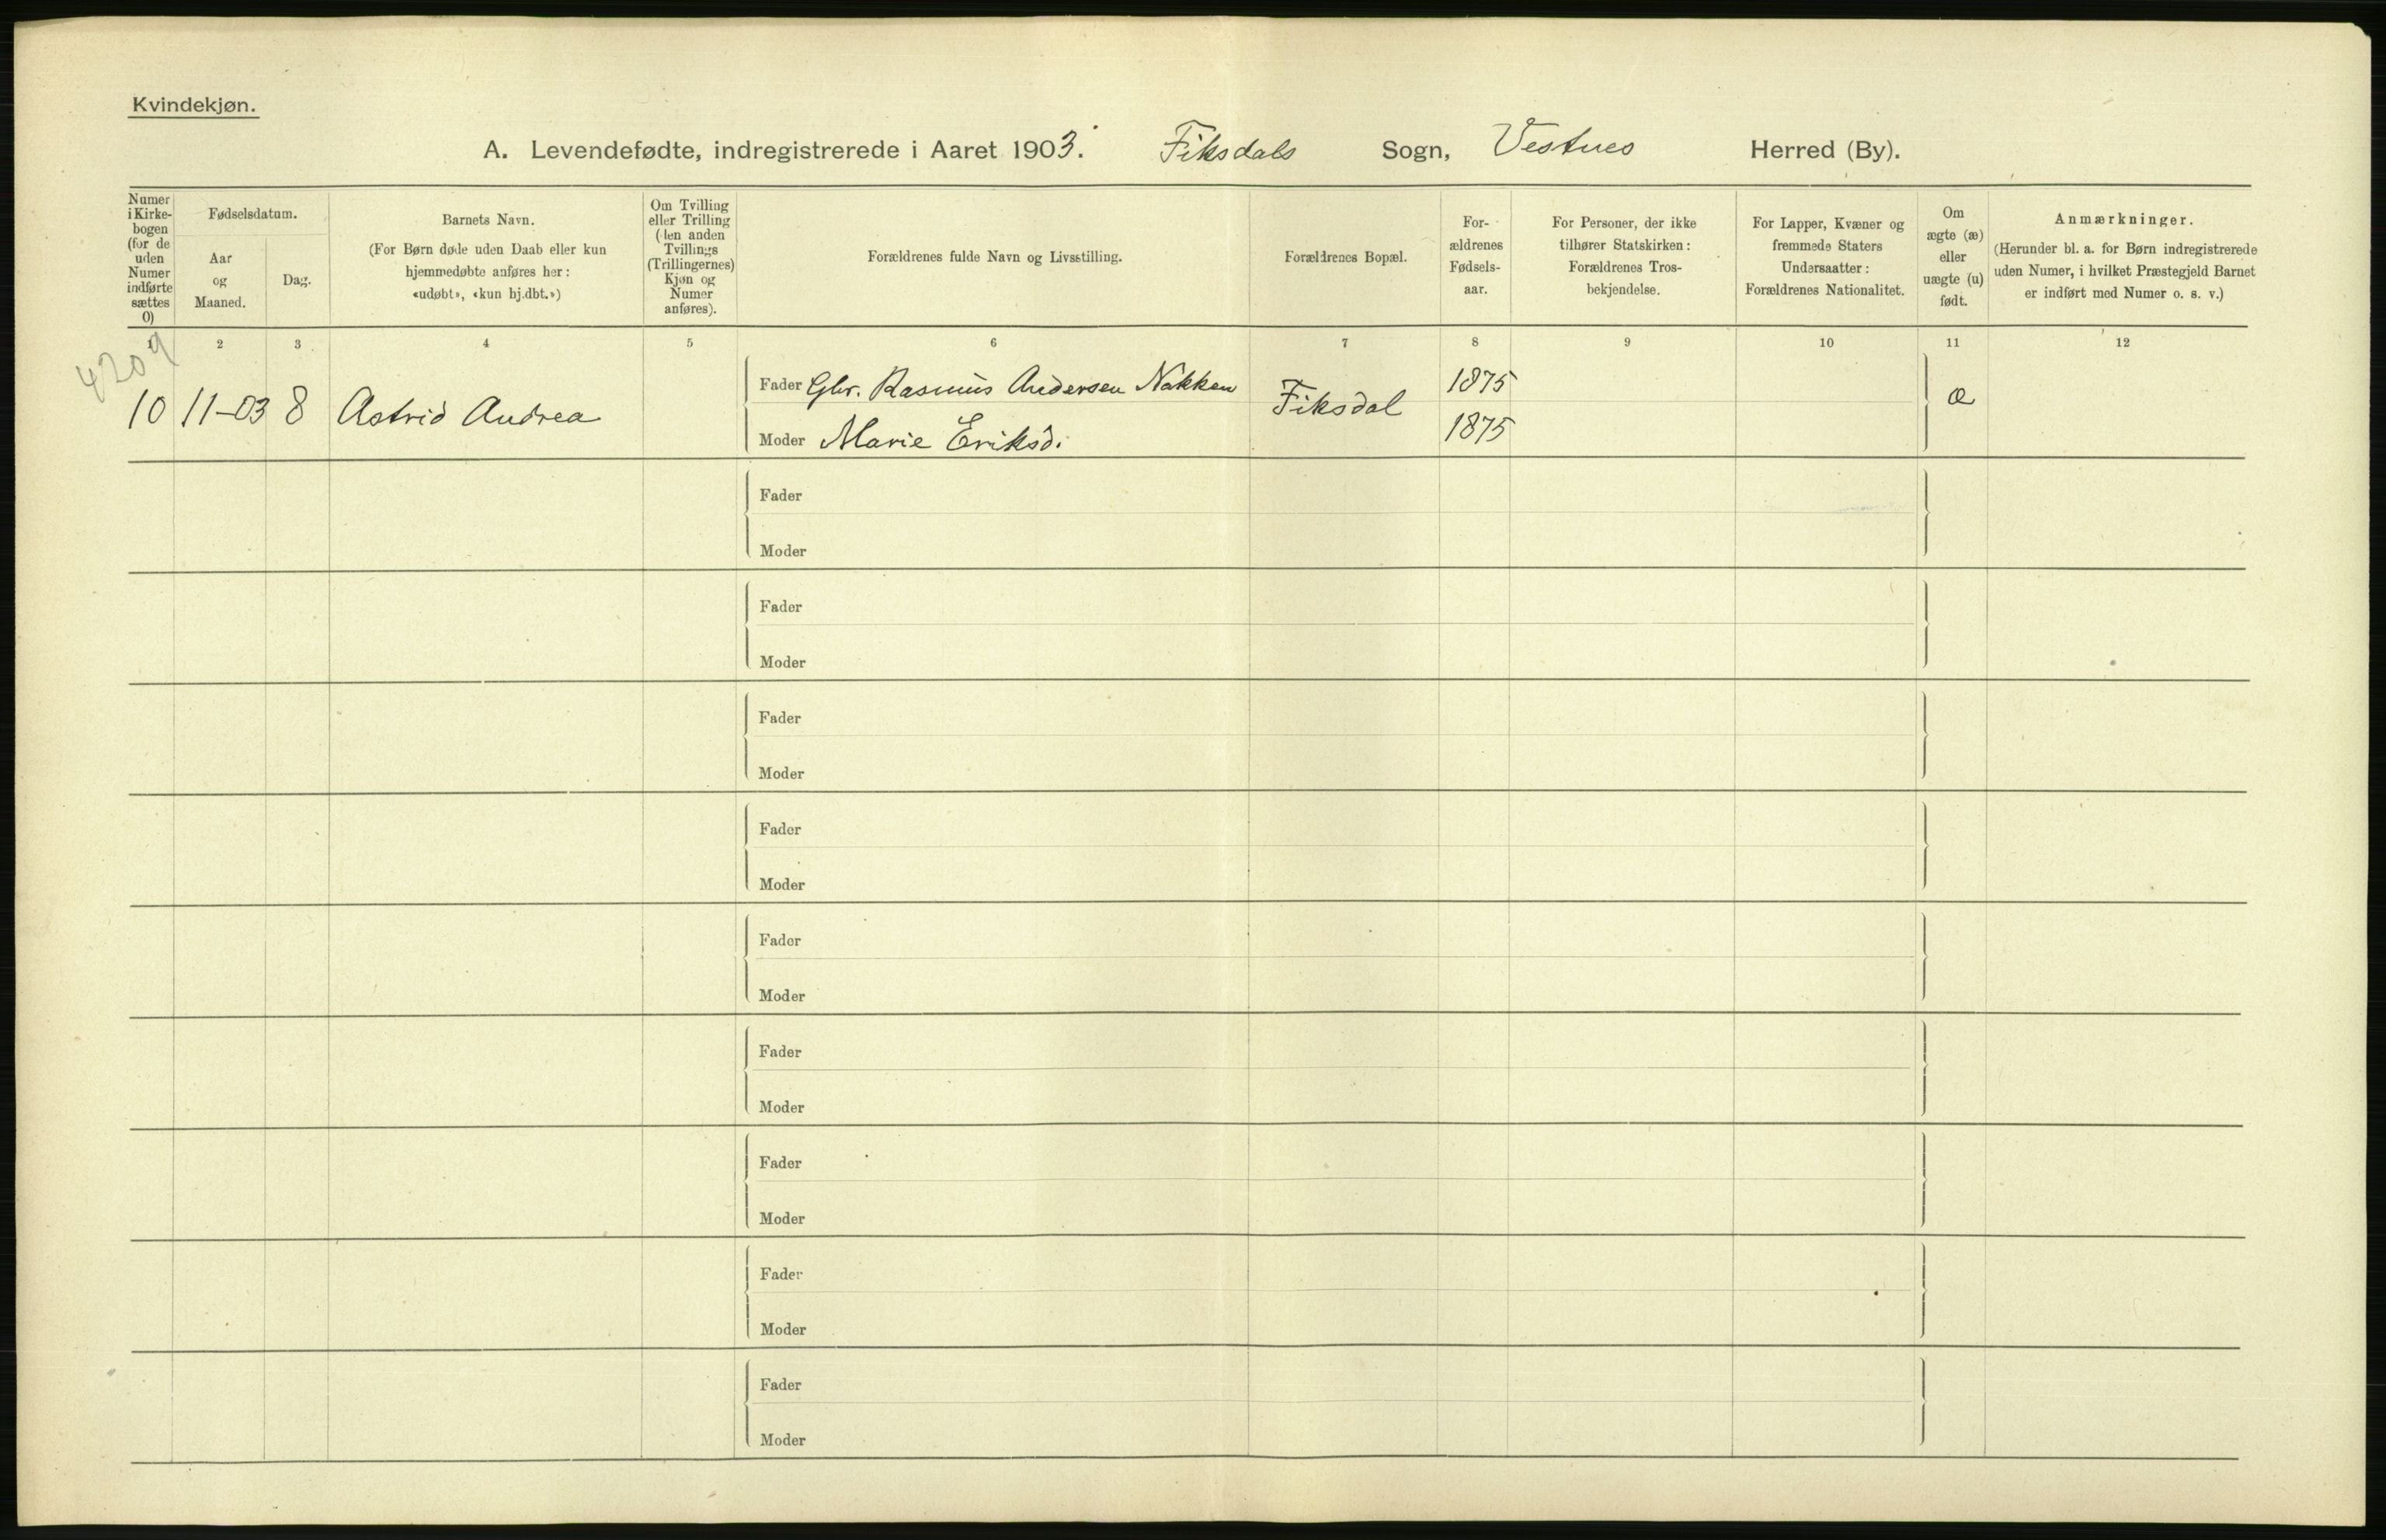 Kvindekjøn.
A. Levendefødte, indregistrerede i Aaret 1903. Fiksdals Sogn, Vestnes Herred (By).
Numer i Kirke-bogen (for de uden Numer indførte sættes 0)
Fødselsdatum.
Aar og Maaned.
Dag.
Barnets Navn.
(For Børn døde uden Daab eller kun
hjemmedøbte anføres her:
«udøbt», «kun hj.dbt.»)
Om Tvilling
eller Trilling
(den anden
Tvillings
(Trillingernes)
Kjøn og
Numer
anføres).
Forældrenes fulde Navn og Livsstilling.
Forældrenes Bopæl.
For-
ældrenes
Fødsels-
aar.
For Personer, der ikke
tilhører Statskirken:
Forældrenes Tros-
bekjendelse.
For Lapper, Kvæner og
fremmede Staters
Undersaatter:
Forældrenes Nationalitet.
Om
ægte (æ)
eller
uægte (u)
født.
Anmærkninger.
(Herunder bl. a. for Børn indregistrerede
uden Numer, i hvilket Præstegjeld Barnet
er indført med Numer o. s. v.)
1 2 3 4 5 6 7 8 9 10 11 12
4209
10 11-03 8 Astrid Andrea
Fader Gbr. Rasmus Andersen Nakken
Moder Marie Eriksd.
Fiksdal
1875
1875
æ
Fader
Moder
Fader
Moder
Fader
Moder
Fader
Moder
Fader
Moder
Fader
Moder
Fader
Moder
Fader
Moder
Fader
Moder